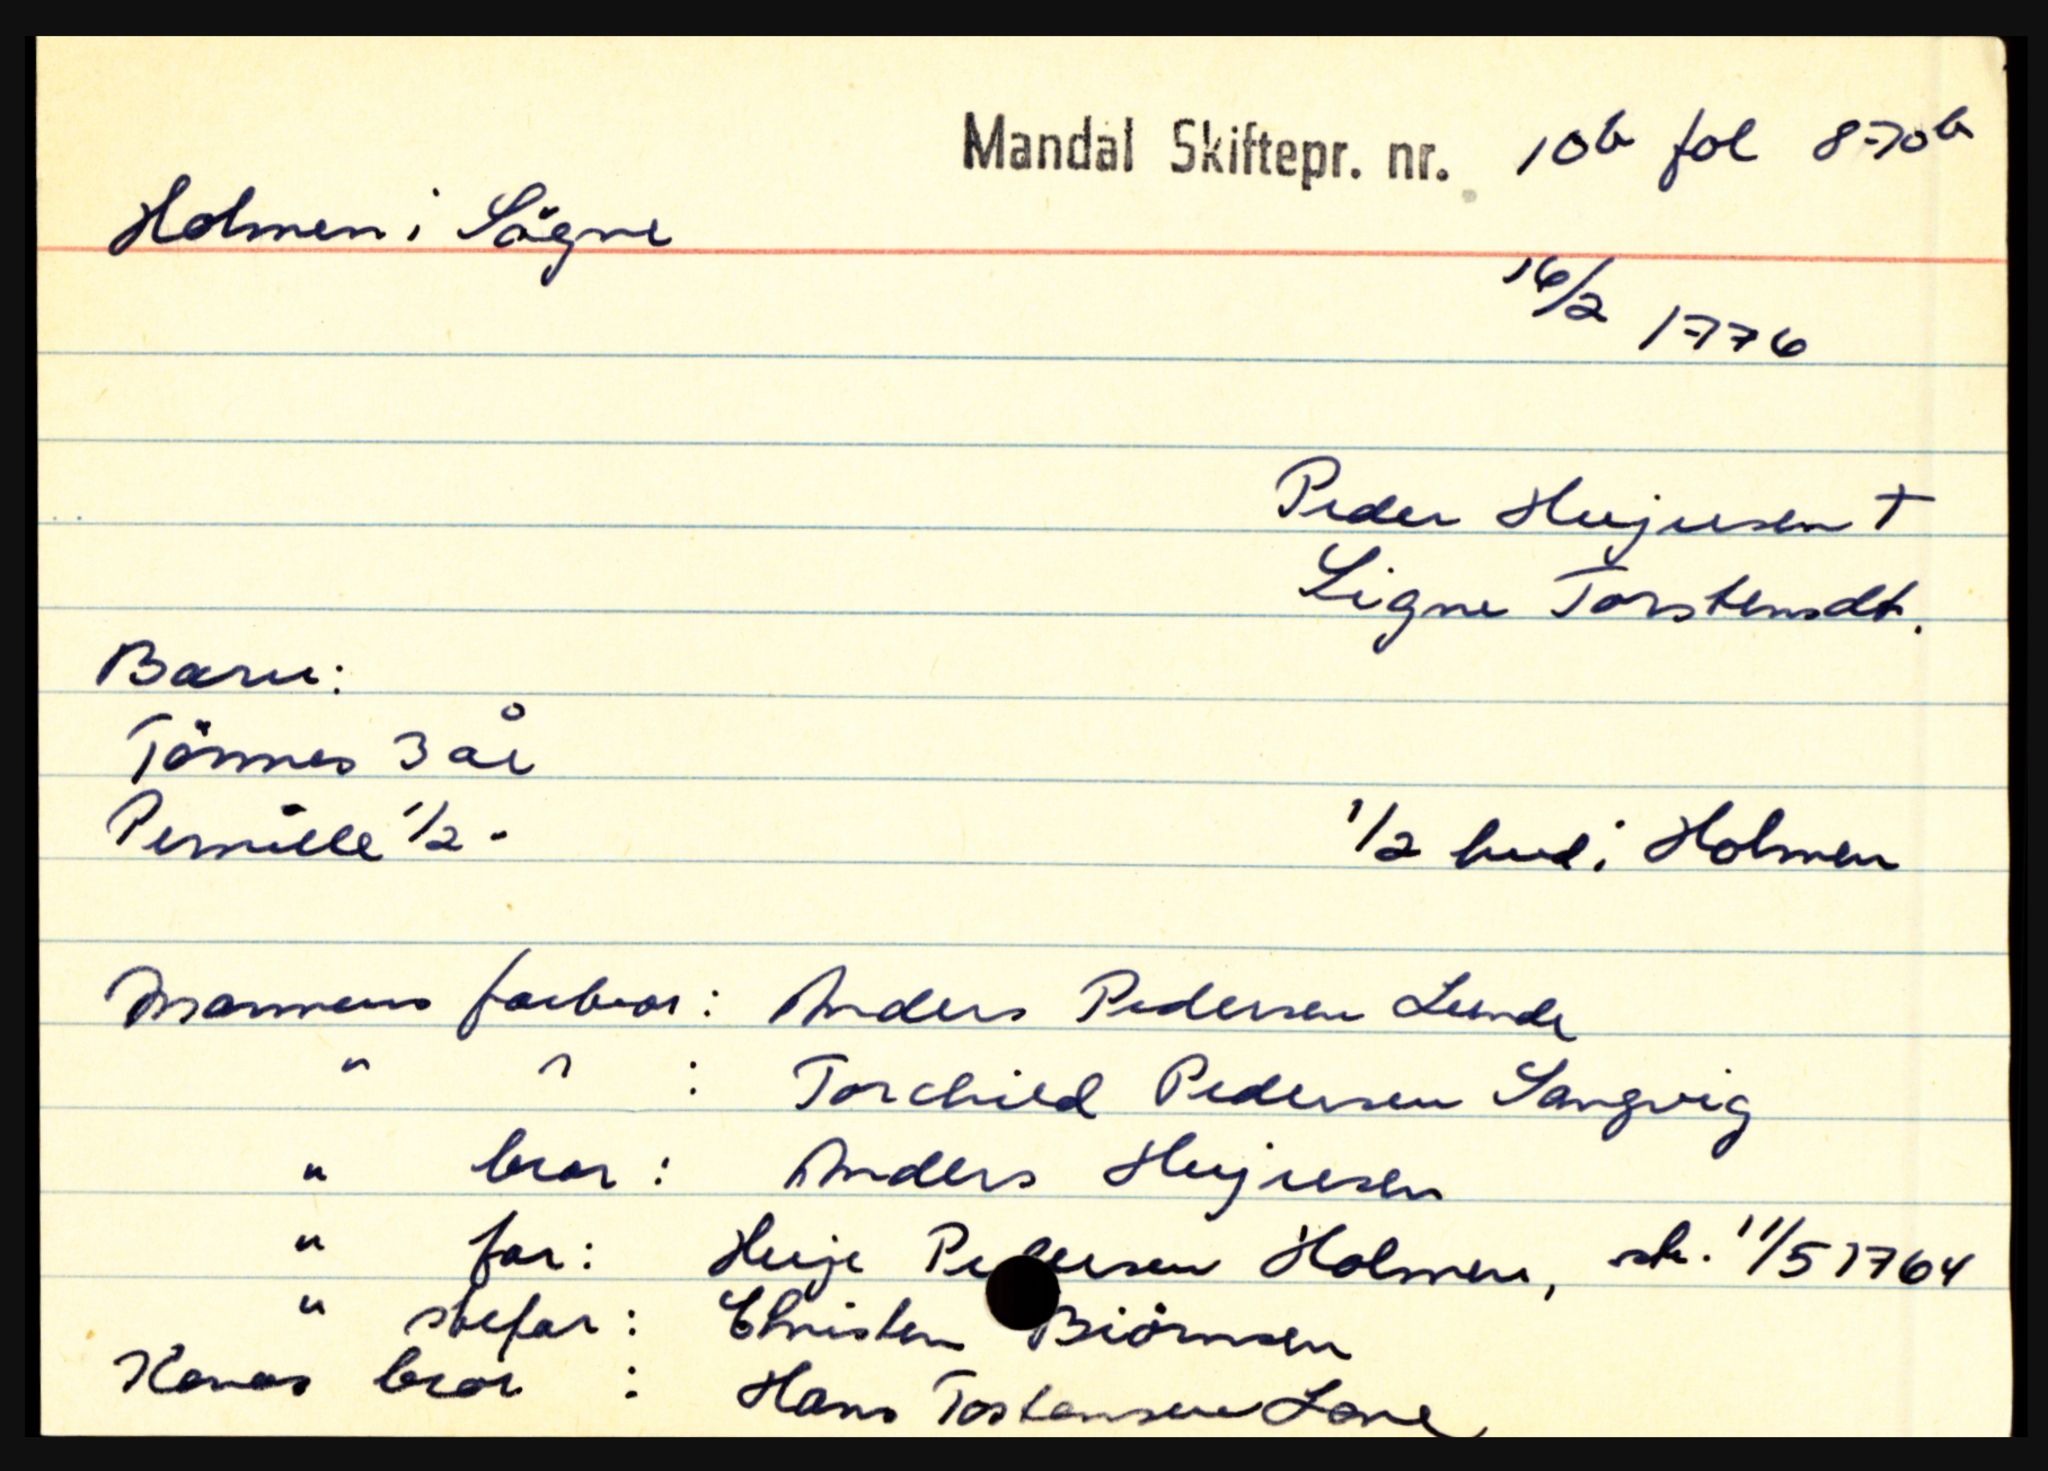 Mandal Skiftepr. nr. 10b fol 870b
Holmen i Sögne
16/2 1776
Peder Heijesen †
Signe Torstensdt.
Barn:
Tönnes 3 år
Pernille 1/2 "
1/2 hud i Holmen
Mannens farbror: Anders Pedersen Lunde
" " : Torchild Pedersen Langvig
" bror : Anders Heijesen
" far : Heije Pedersen Holmen, sk. 11/5 1764
" stefar : Christen Biörnsen
Konas bror : Hans Tostensen Lone